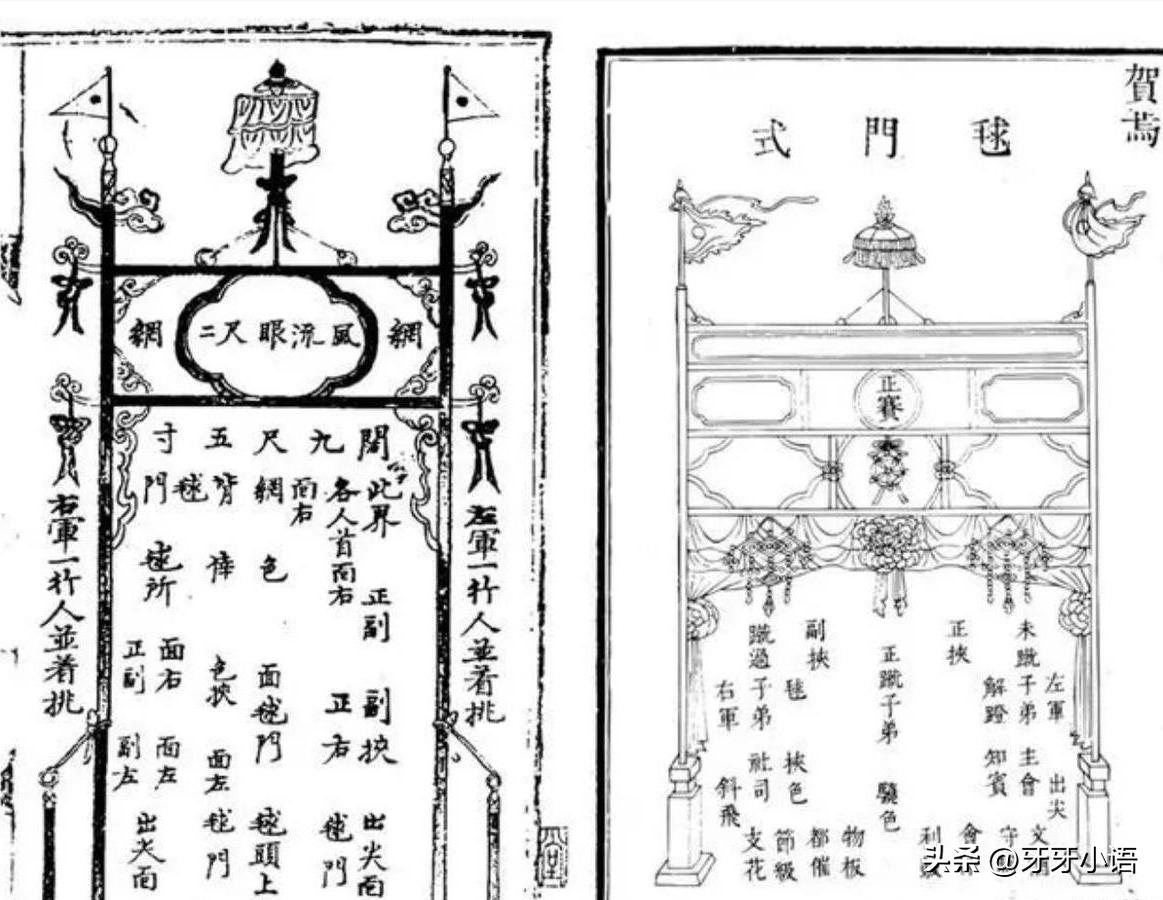 網 風流眼尺二 網
闊尺九五寸
左軍一行人並着挑
右軍一行人並着挑
此界
各人首面右
面右
網
背
毬門
正副
色
毬所
副挾
正右
面毬門
色挾
面右
正副
出尖面
毬門
毬頭上
面左
毬門
面左
副左
出尖面
賀焉
毬門式
正賽
未蹴子弟
左軍
解蹬
知賓
主會
出尖
正挾
正蹴子弟
驍色
副挾
毬
挾色
蹴過子弟
右軍
社司
斜飛
物板
都催
節級
支花
會
守
頭条 @牙牙小语